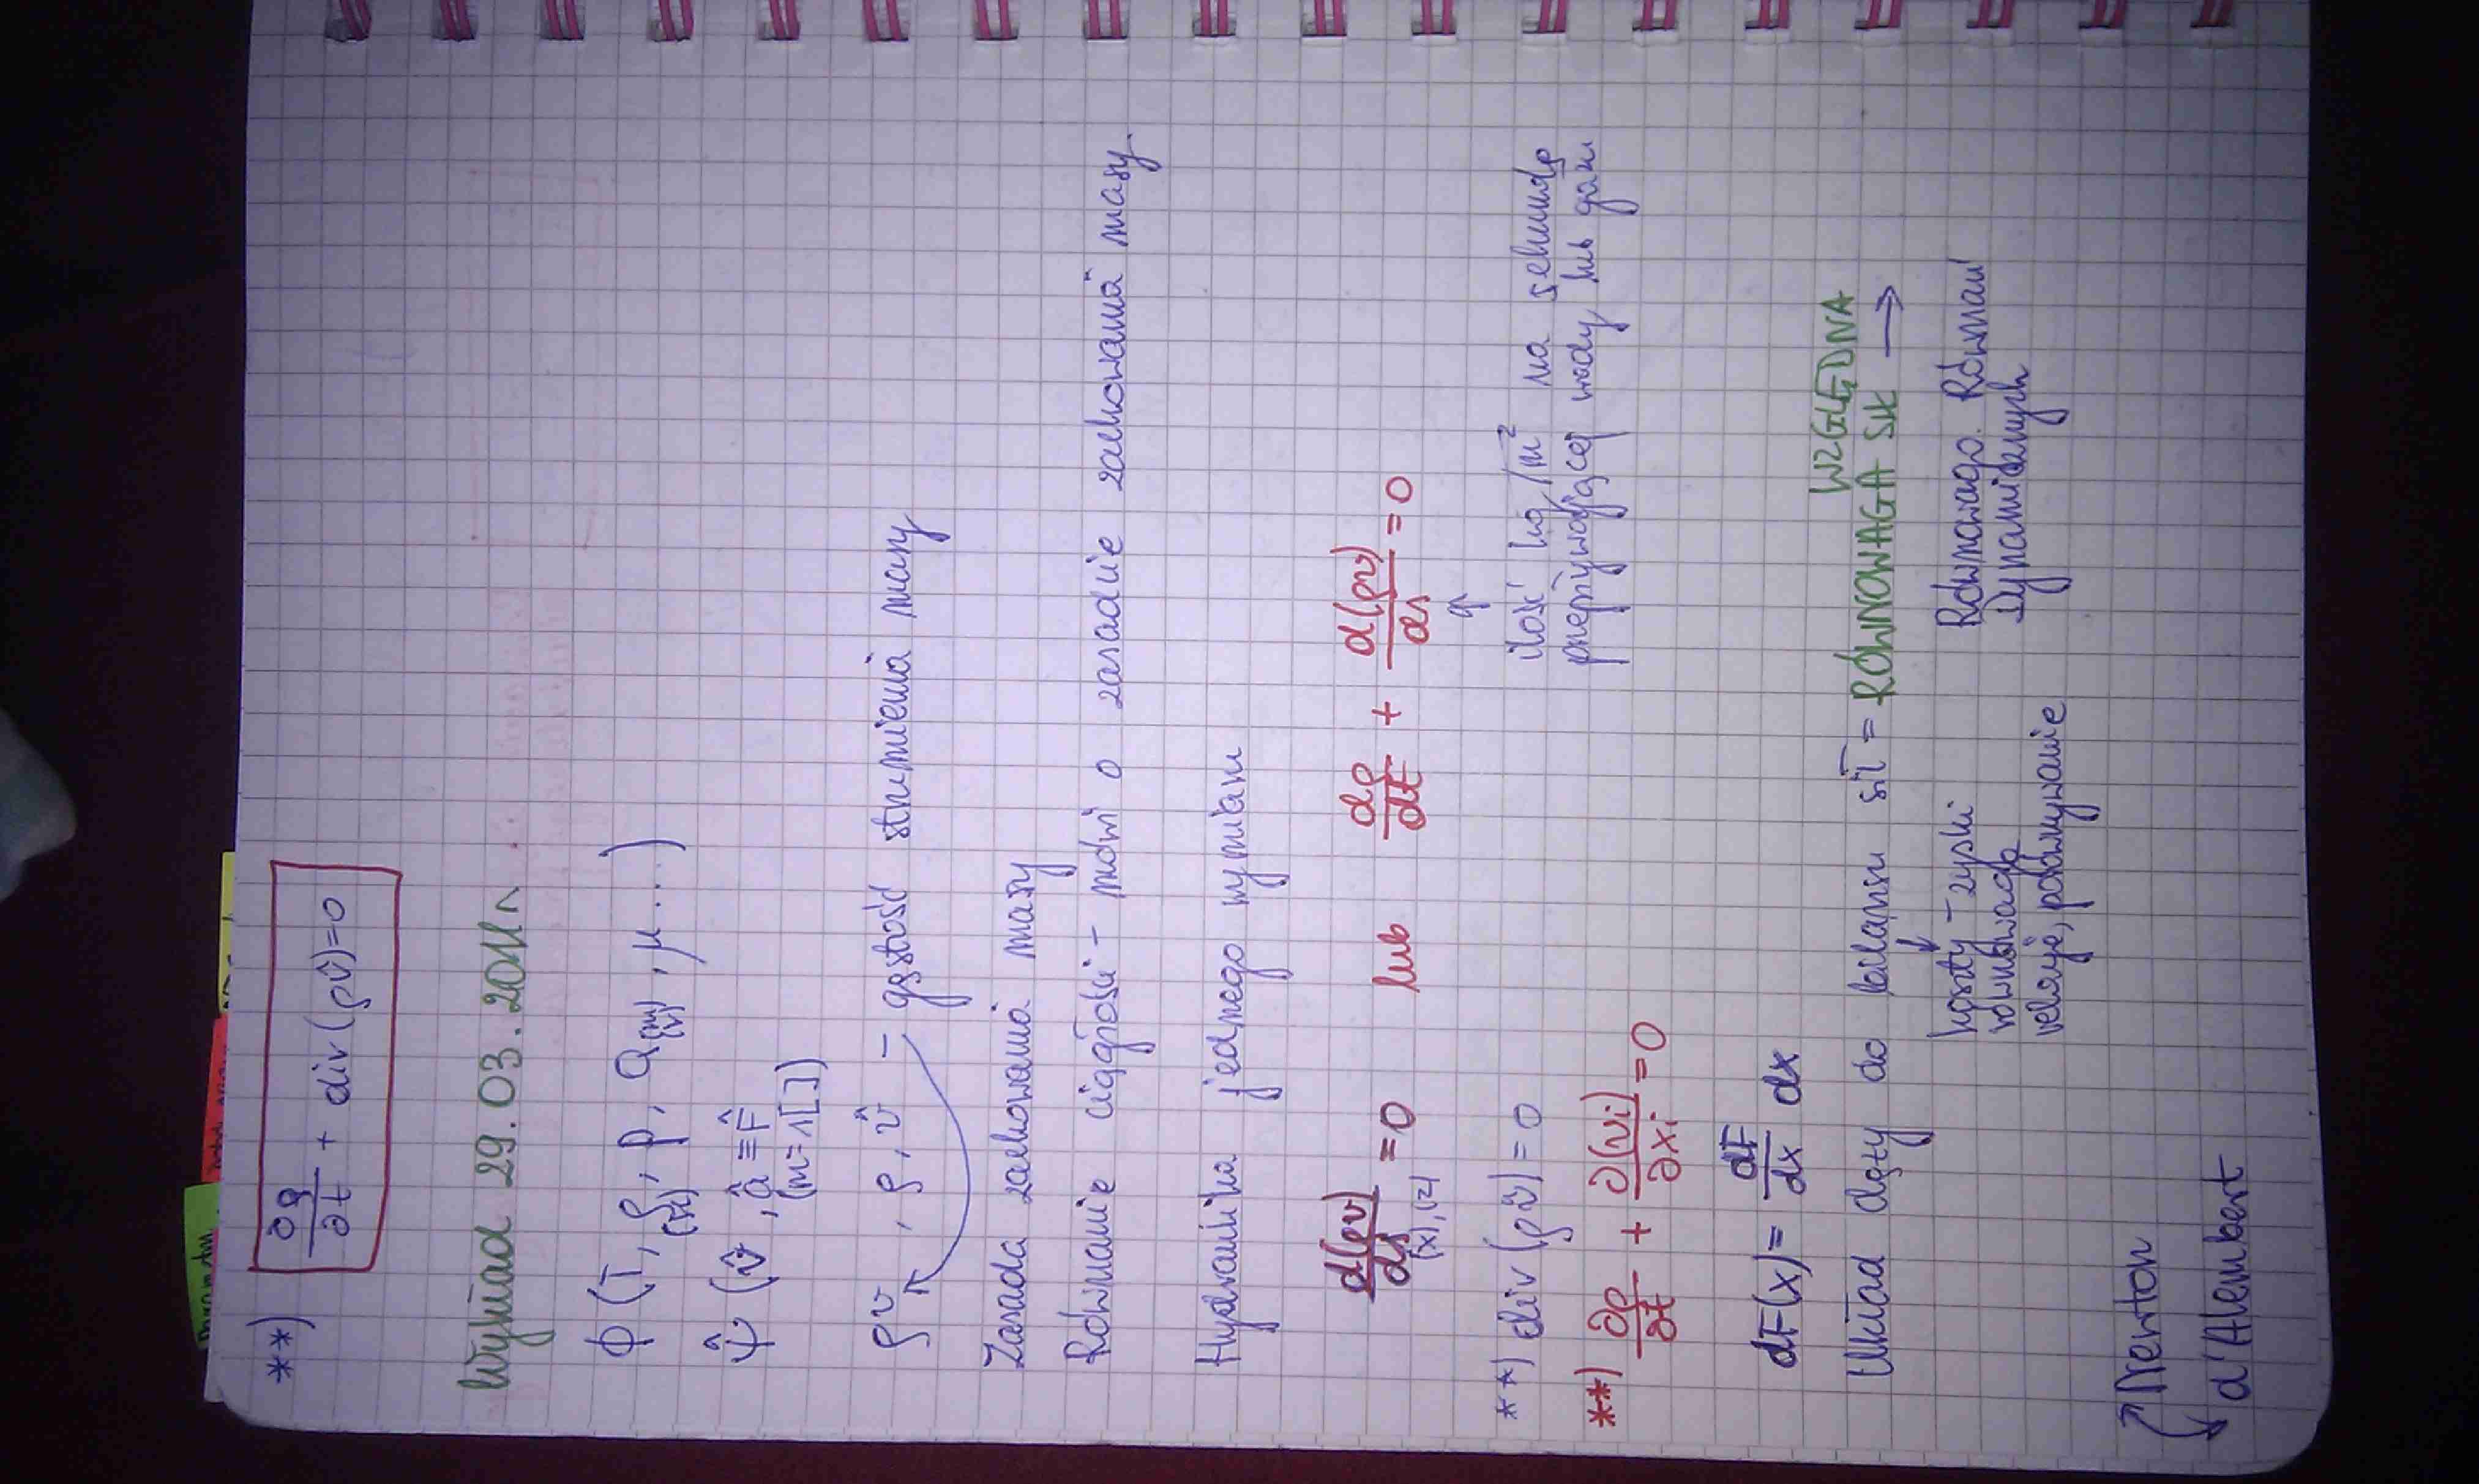 **) ∂ρ/∂t + div(ρv̂)=0
Wykład 29.03.2011r.
ϕ(T, ρ, p, q, μ...)
(x) (m) (v)
ψ̂(v̂, â≡F̂
(m=1[])
ρv, ρ, v̂ – gęstość strumienia masy
Zasada zachowania masy
Równanie ciągłości – mówi o zasadzie zachowania masy.
Hydraulika jednego wymiaru
d(ρv)/ds = 0 lub dρ/dt + d(ρv)/ds = 0
(x),(z)
**) div(ρv̂)=0 ilość kg/m² na sekundę
przepływającej wody lub gazu
**) ∂ρ/∂t + ∂(vi)/∂xi = 0
dF(x) = dF/dx dx
WZGLĘDNA
Układ dąży do bilansu sił = RÓWNOWAGA SIŁ →
koszty – zyski
równowaga
relacje, porównywanie
Równowaga. Równań
Dynamicznych
Newton
d'Alembert